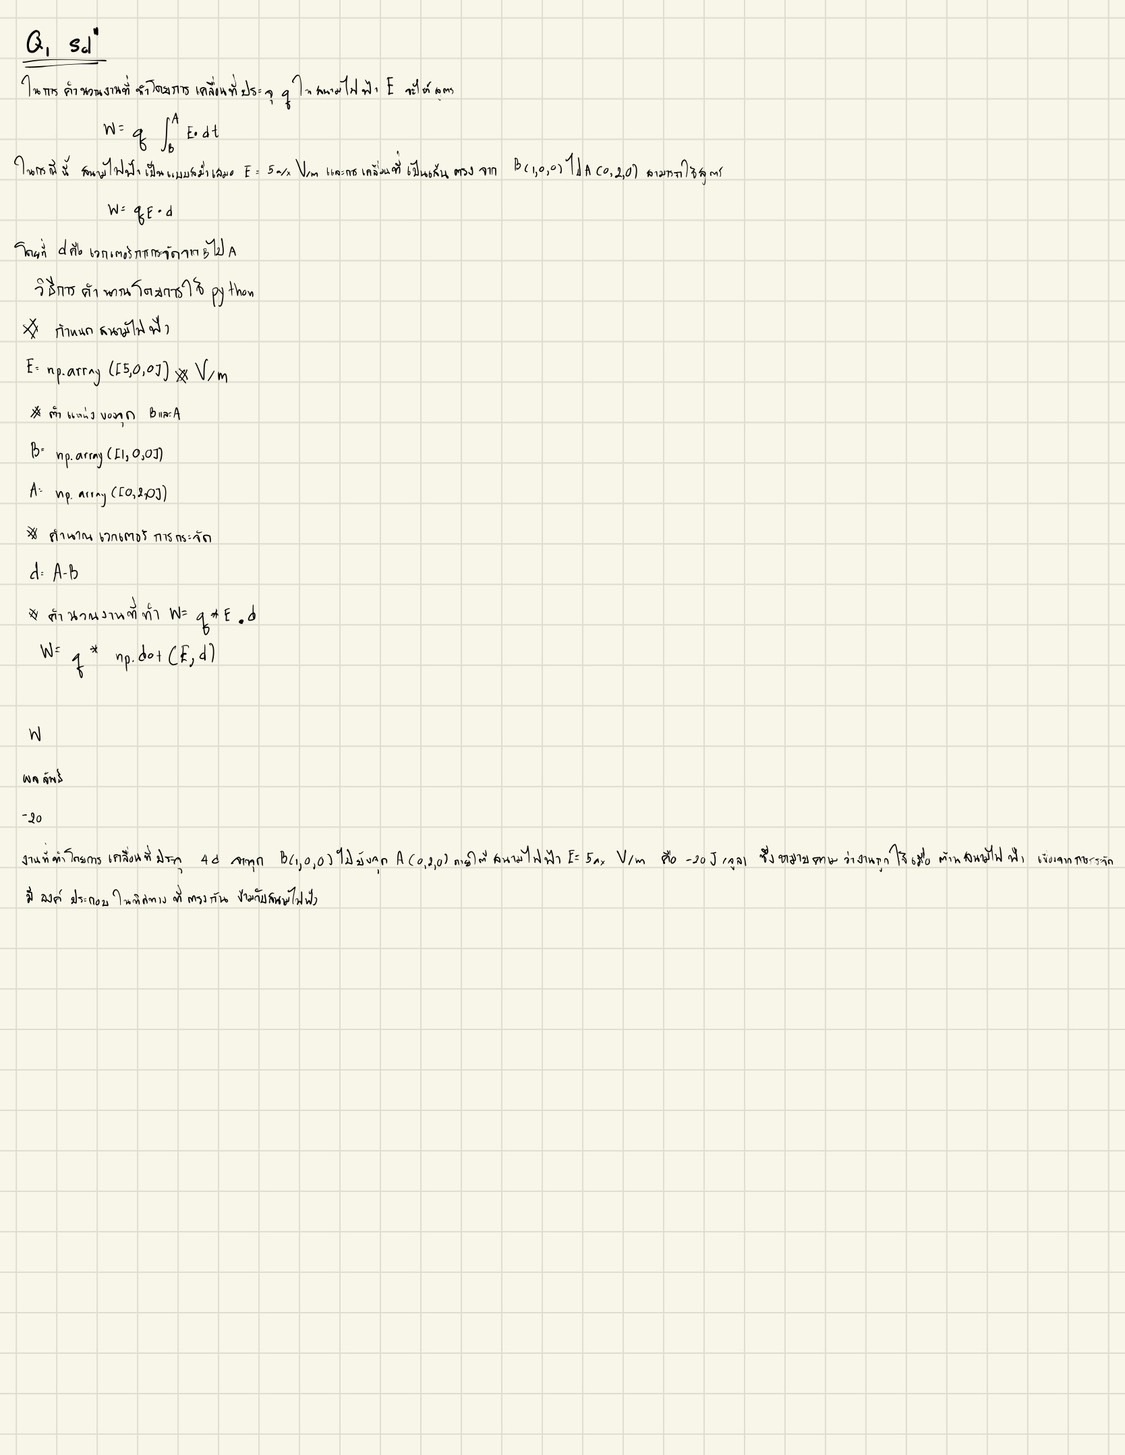 Q1 sol"
ในการคำนวณงานที่ทำโดยการเคลื่อนที่ประจุ q ในสนามไฟฟ้า E จะใช้สูตร
W= q ∫_B^A E•dt
ในกรณีนี้ สนามไฟฟ้าเป็นแบบสม่ำเสมอ E = 5ax V/m และการเคลื่อนที่เป็นเส้นตรงจาก B(1,0,0) ไป A(0,2,0) สามารถใช้สูตร
W= qE•d
โดยที่ d คือ เวกเตอร์การกระจัดจาก B ไป A
วิธีการคำนวณโดยการใช้ python
※ กำหนดสนามไฟฟ้า
E= np.array([5,0,0]) ※ V/m
※ ตำแหน่งของจุด B และ A
B= np.array([1,0,0])
A= np.array([0,2,0])
※ คำนวณเวกเตอร์การกระจัด
d= A-B
※ คำนวณงานที่ทำ W= q*E.d
W= q* np.dot(E,d)
W
ผลลัพธ์
-20
งานที่ทำโดยการเคลื่อนที่ประจุ 4d จากจุด B(1,0,0) ไปยังจุด A(0,2,0) ภายใต้สนามไฟฟ้า E= 5ax V/m คือ -20 J (จูล) ซึ่งหมายความว่างานถูกใช้เมื่อต้านสนามไฟฟ้า เนื่องจากการกระจัด
มีองค์ประกอบในทิศทางที่ตรงกันข้ามกับสนามไฟฟ้า